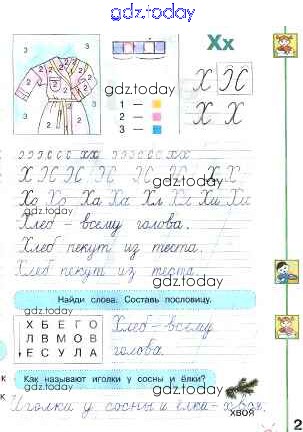 gdz.today
3 3
2 2 2
1
3 3
Хх
gdz.today
1 —
2 —
3 —
Х Ж
Х Х
gdz.today
gdz.today
Хо Хо Ха Ха Хл Хи Хи
gdz.today
Хлеб – всему голова.
gdz.today
Хлеб пекут из теста.
gdz.today
Хлеб пекут из теста.
gdz.today
Найди слова. Составь пословицу.
Х Б Е Г О
Л В М О В
Е С У Л А
Хлеб – всему
голова.
gdz.today
gdz.today
Как называют иголки у сосны и ёлки?
Иголки у сосны и ёлки – хвоя.
ХВОЯ
gdz.today
2